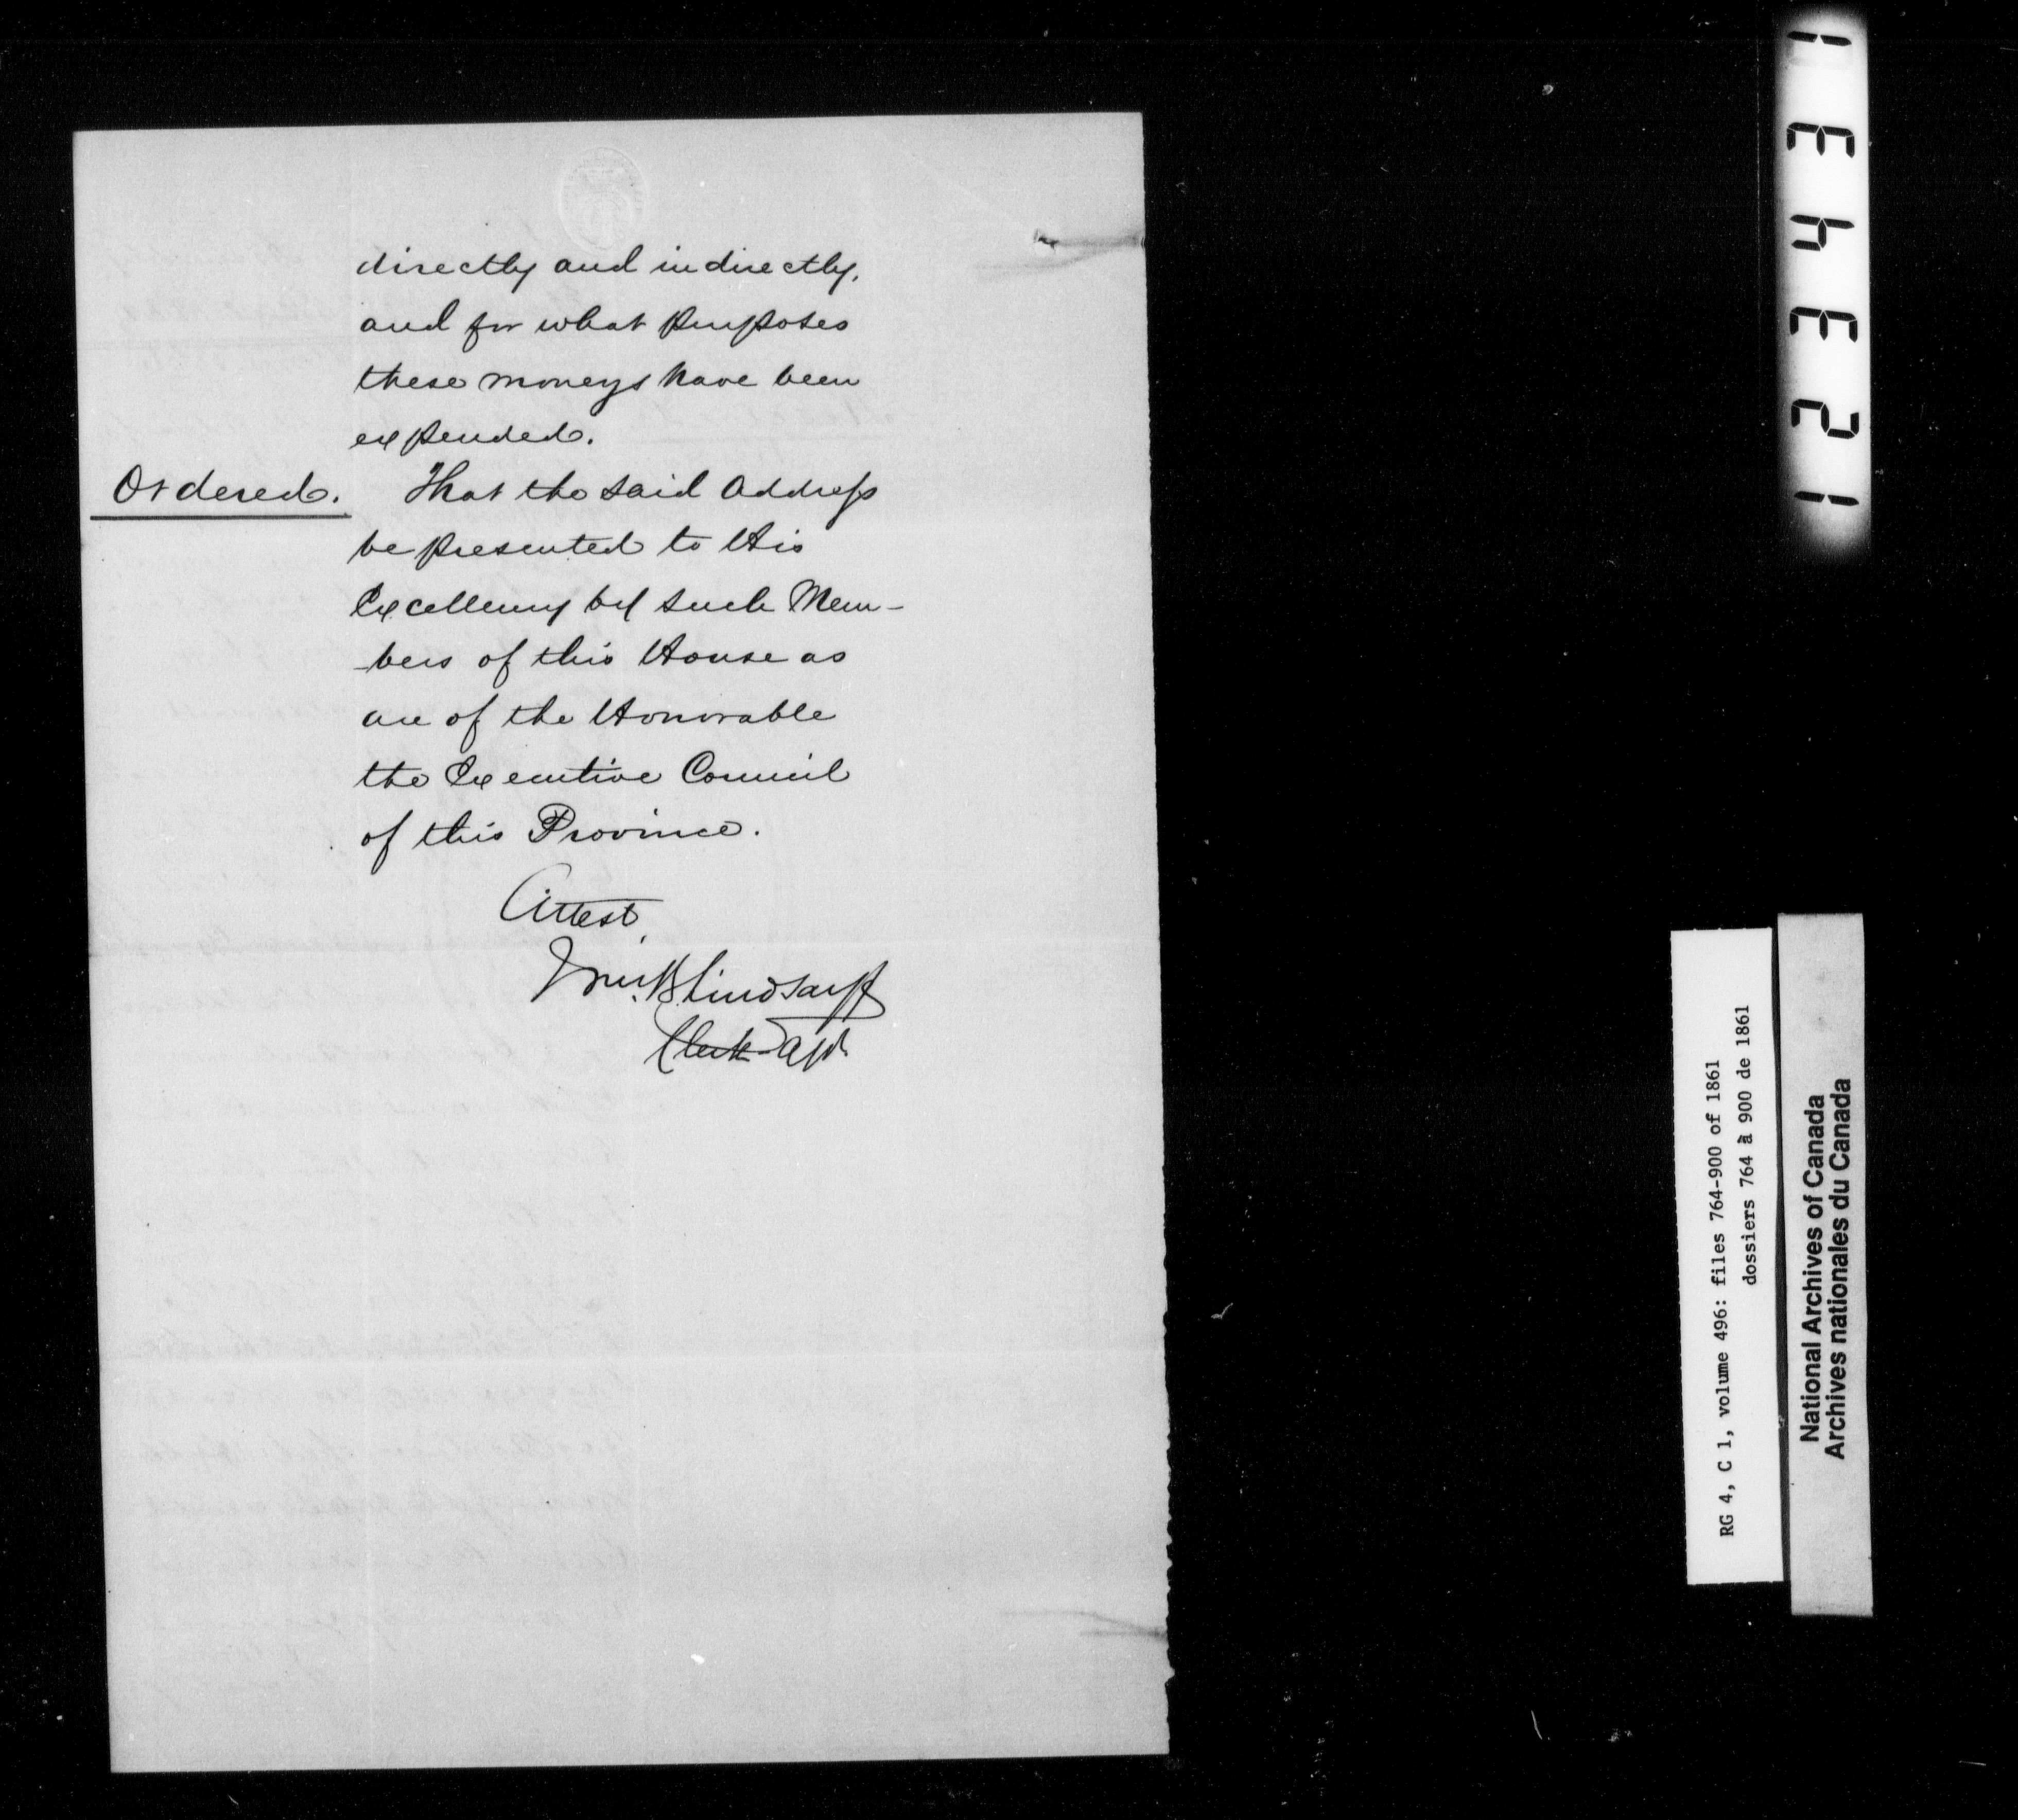 directly and indirectly,
and for what purposes
these moneys have been
expended.
Ordered. That the said Address
be presented to His
Excellency by such Mem-
-bers of this House as
are of the Honorable
the Executive Council
of this Province.
Attest,
Wm. B. Lindsay
Clerk Assy.
RG 4, C 1, volume 496: files 764-900 of 1861
dossiers 764 à 900 de 1861
National Archives of Canada
Archives nationales du Canada